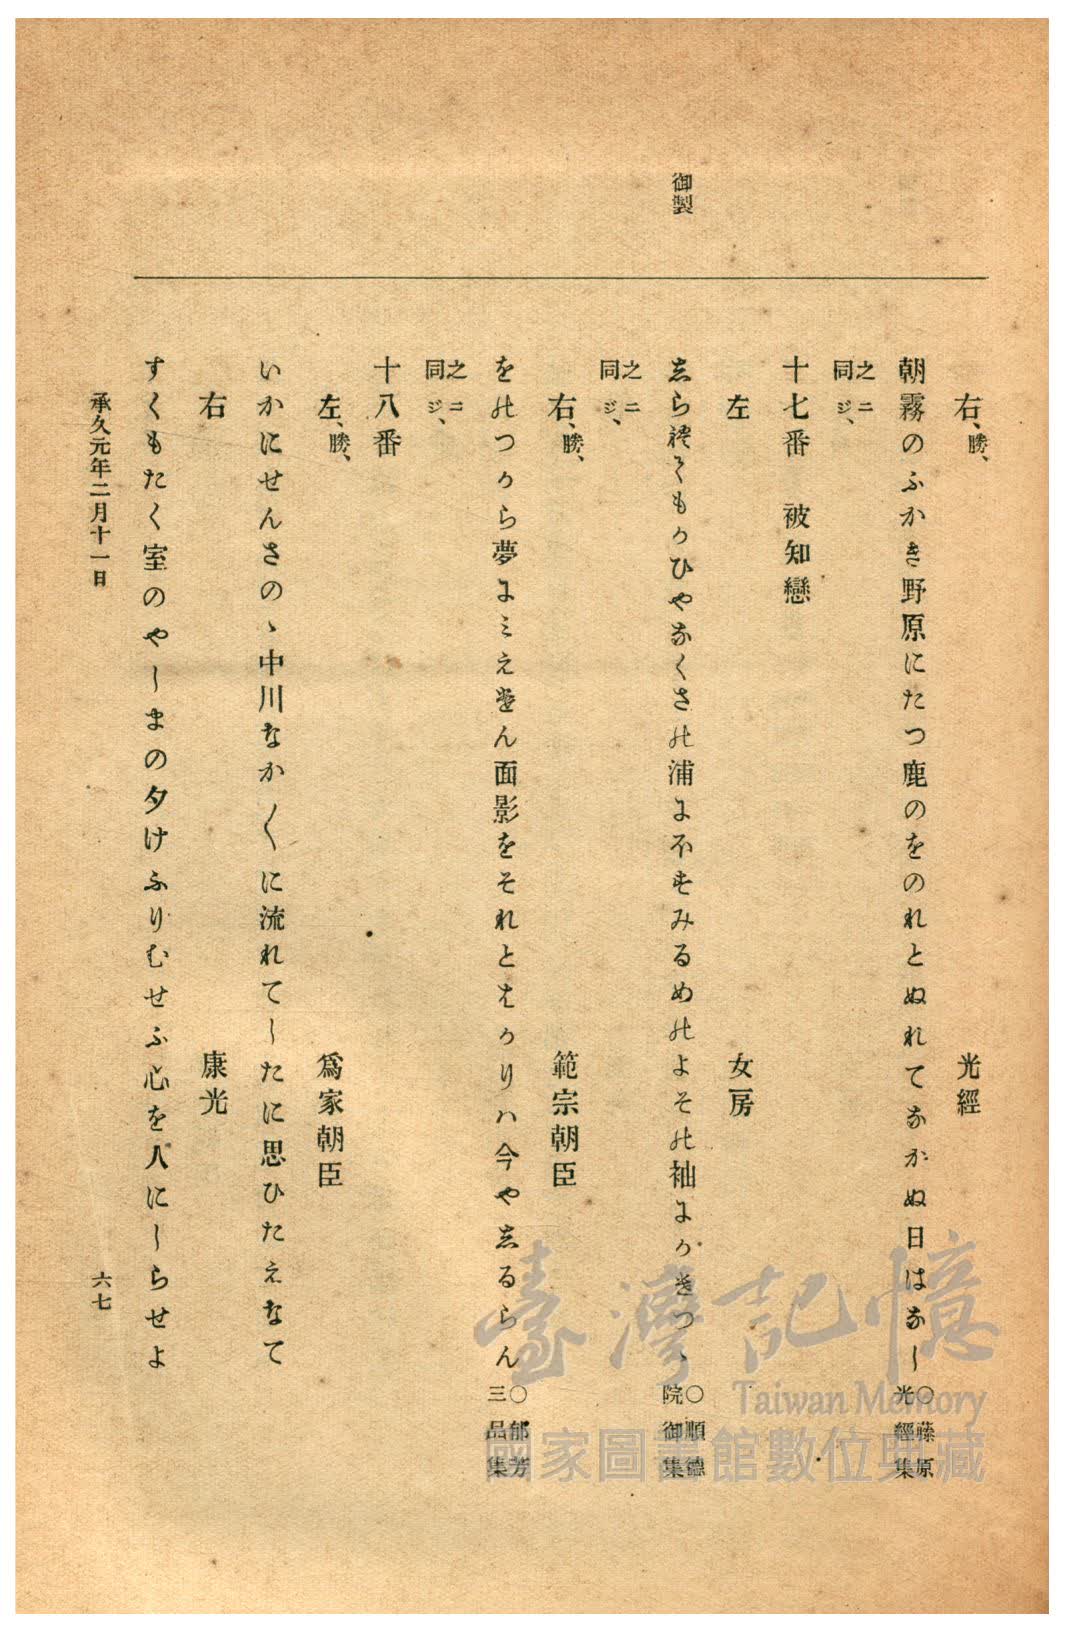 御製
右、勝、 光經
朝霧のふかき野原にたつ鹿のをのれとぬれてなかぬ日はなし○藤原光經集
之ニ同ジ、
十七番 被知戀
左 女房
しら禮てもかひやなくさの浦にかすみるめのよそ能袖にかきつゝ○順德院御集
之ニ同ジ、
右、勝、 範宗朝臣
をのつから夢にミえけん面影をそれとはかりハ今やしるらん○郁芳三品集
之ニ同ジ、
十八番
左、勝、 爲家朝臣
いかにせんさのゝ中川なか〱に流れてしたに思ひたえなて
右 康光
すくもたく室のやしまの夕けふりむせふ心を人にしらせよ
承久元年二月十一日
六七
臺灣記憶
Taiwan Memory
國家圖書館數位典藏